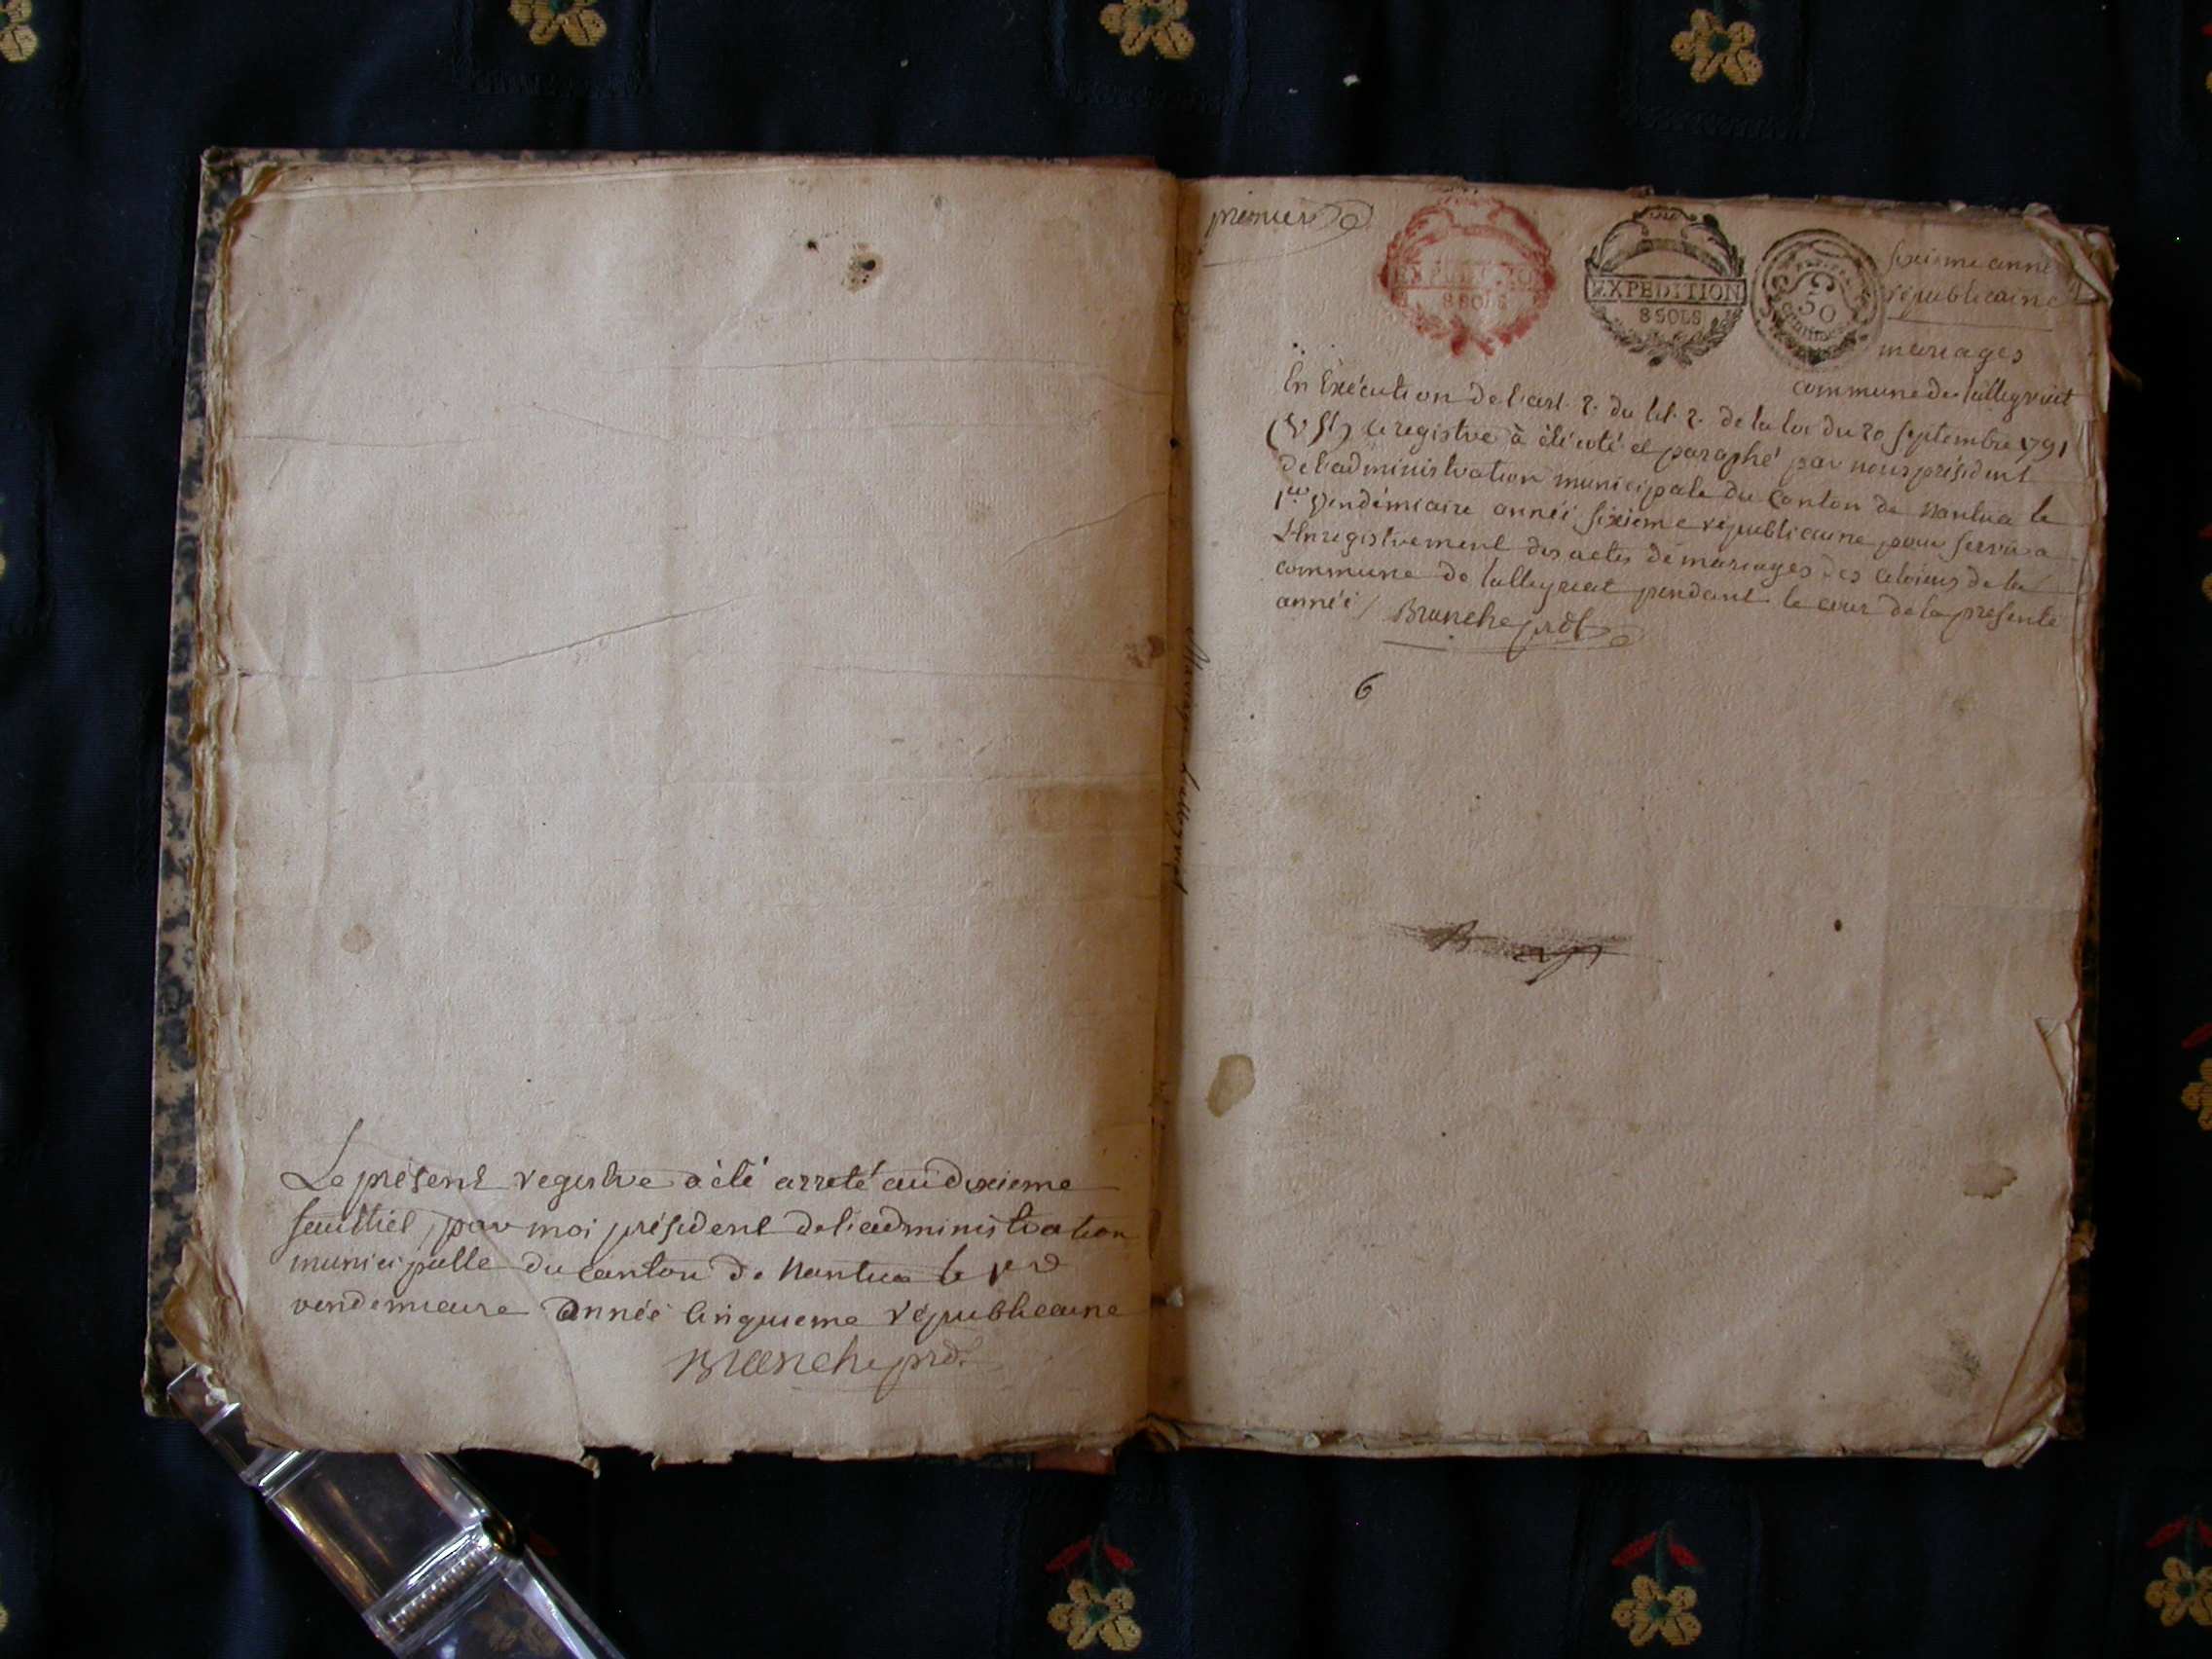 Le présent registre a été arreté au dixieme
feuillet, par moi président de l'administration
municipalle du canton de Nantua le 1er
vendemiaire année cinquieme républicaine
Branche prdt
premier
EXPEDITION
8 SOLS
EXPEDITION
8 SOLS
50
centimes
sixieme année
républicaine
mariages
commune de talleyriat
En Exécution de l'art. 2. du tit. 2. de la loi du 20 septembre 1791
(V. St) le registre à été coté et paraphé par nous président
de l'administration municipale du Canton de Nantua le
1er vendémiaire année sixieme républicaine pour servir a
L'Enregistrement des actes de mariages des citoiens de la
commune de talleyriat pendant le cour de la presente
année / Branche prdt
6